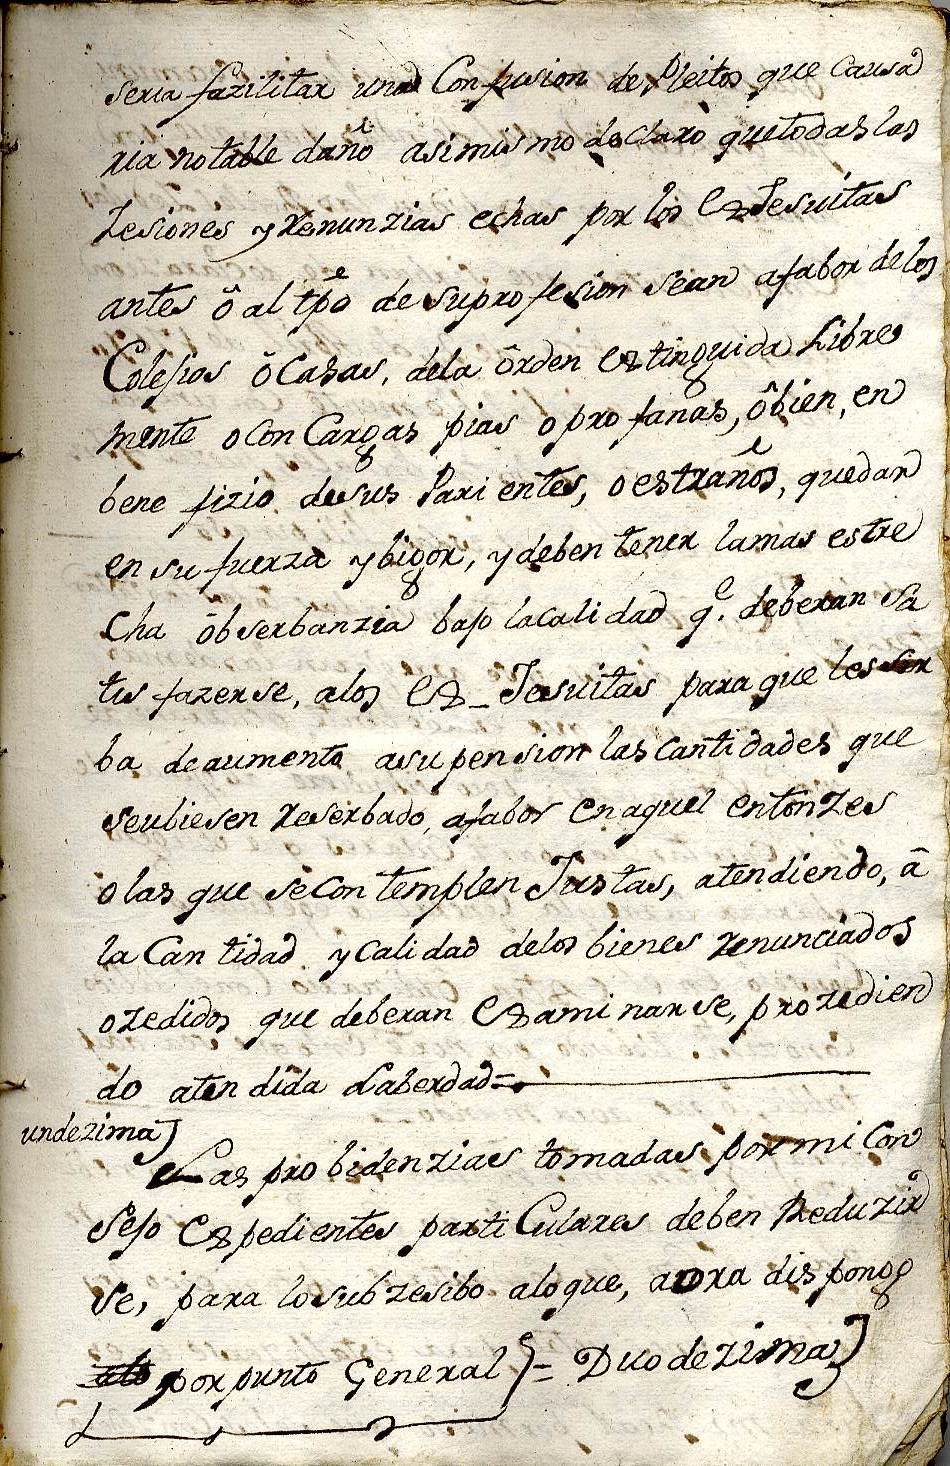 seria fazilitar una Confusion de Pleitos que Causa
ria notable daño asimismo declaro que todas las
zesiones y Renunzias echas por los Ex Jesuitas
antes ô al tpo de su profesion sean afabor de los
Colejios ô Casas, dela ôrden extinguida Libre
mente o Con Cargas pias o profanas, ô bien, en
bene fizio de sus Parientes, o estraños, quedan
en su fuerza y bigor, y deben tener la mas estre
cha ôbserbanzia bajo la calidad q.e deberan sa
tis fazerse, a los Ex_Jesuitas para que les sir
ba de aumento a su pension las cantidades que
se ubiesen Reserbado, afabor en aquel entonzes
o las que se Con templen Justas, atendiendo, â
la Can tidad y Calidad de los bienes renunciados
o zedidos que deberan Examinarse, prozedien
do aten dida la berdad=
undezima)
Las probidenzias tomadas por mi Con
sejo Expedientes partiCulares deben Reduzir
se, para lo subzesibo a lo que, aora dispongo
por punto General)= Duodezima)